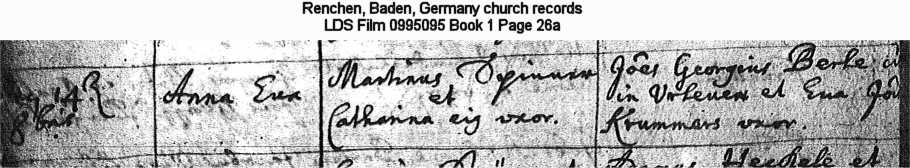 Renchen, Baden, Germany church records
LDS Film 0995095 Book 1 Page 26a
14
8bris
Anna Eva
Martinus Spinner
et
Catharina eig uxor.
Jões Georgius Berle
in Urleven et Eva Jõ
Krummers uxor.
et